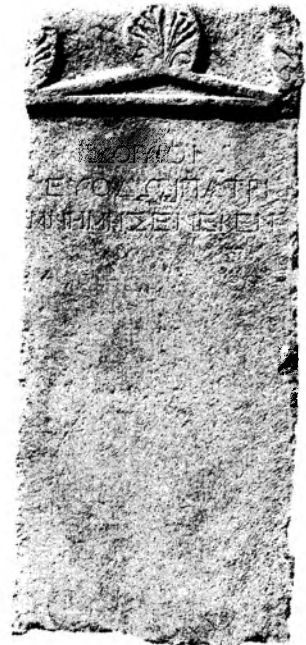 ΕΥΟΔΩ ΠΑΤΡΙ
ΜΝΗΜΗΣ ΕΝΕΚΕΝ